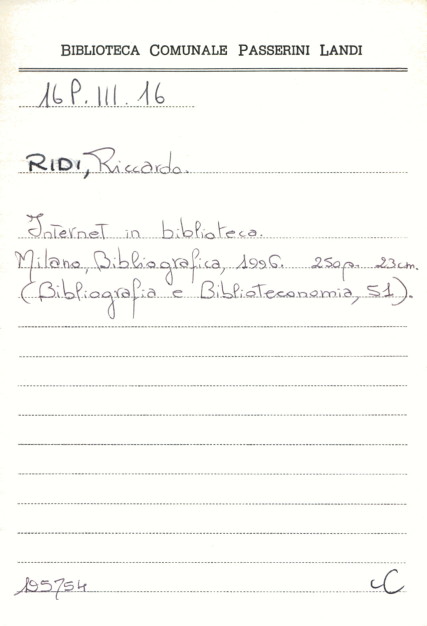 BIBLIOTECA COMUNALE PASSERINI LANDI
16 P. III. 16
RIDI, Riccardo.
Internet in biblioteca.
Milano, Bibliografica, 1996. 250p. 23cm.
(Bibliografia e Biblioteconomia, 51).
195754 C